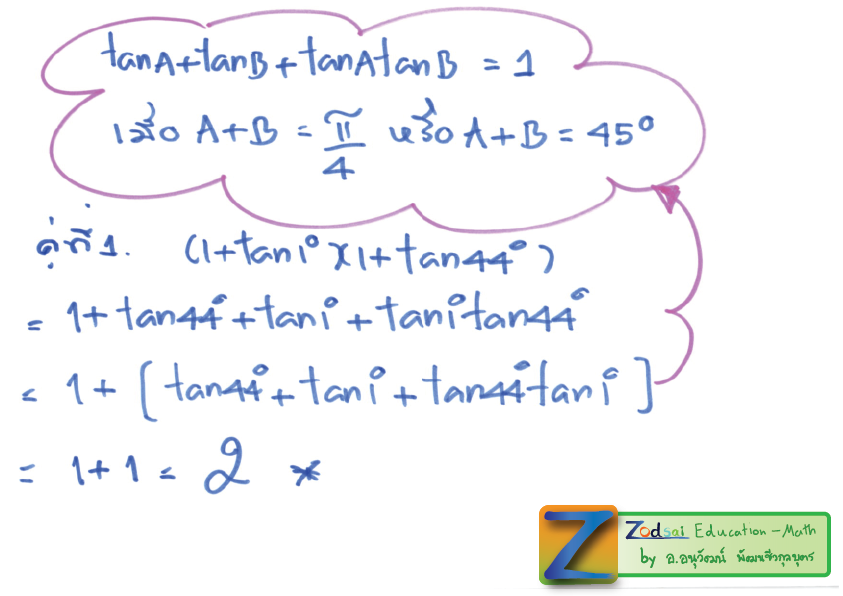 tanA+tanB+tanAtanB = 1
เมื่อ A+B = π/4 หรือ A+B = 45°
คู่ที่ 1. (1+tan1°)(1+tan44°)
= 1+tan44°+tan1°+tan1°tan44°
= 1+[tan44°+tan1°+tan44°tan1°]
= 1+1 = 2 *
Z
Zodsai Education-Math
by อ.อนุวัฒน์ พัฒนชีวกุลบุตร